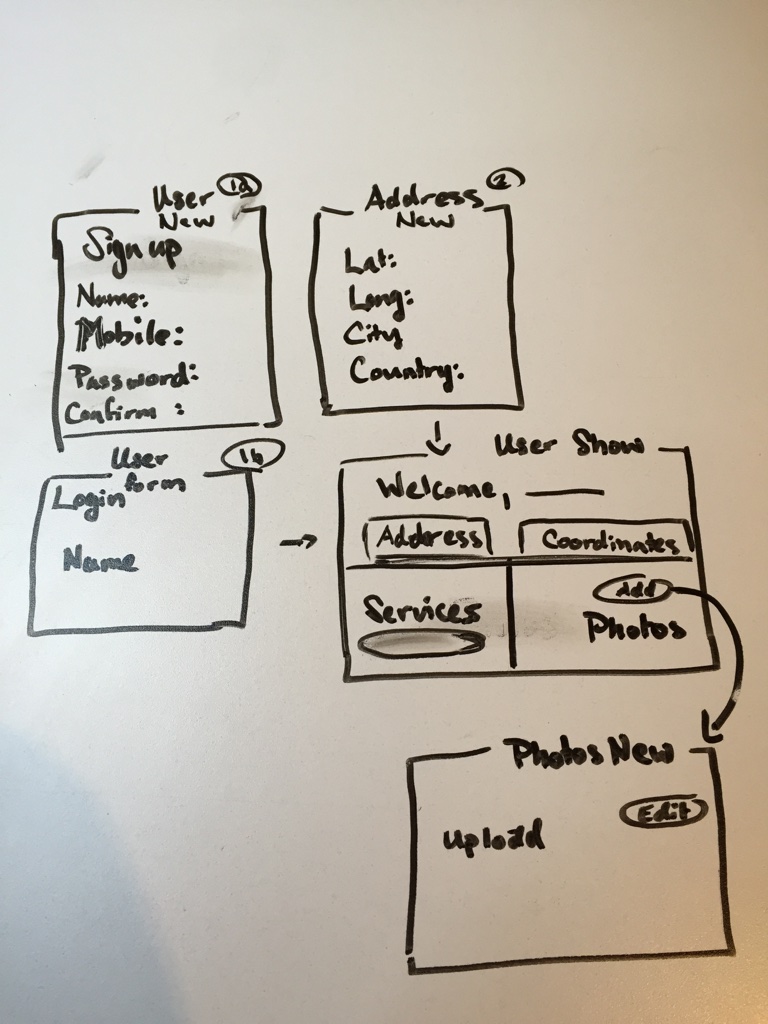 User 1a
New
Sign up
Name:
Mobile:
Password:
Confirm :
Address 2
New
Lat:
Long:
City
Country:
User 1b
form
Login
Name
User Show
Welcome,
Address
Coordinates
Services
Add
Photos
Photos New
Edit
Upload